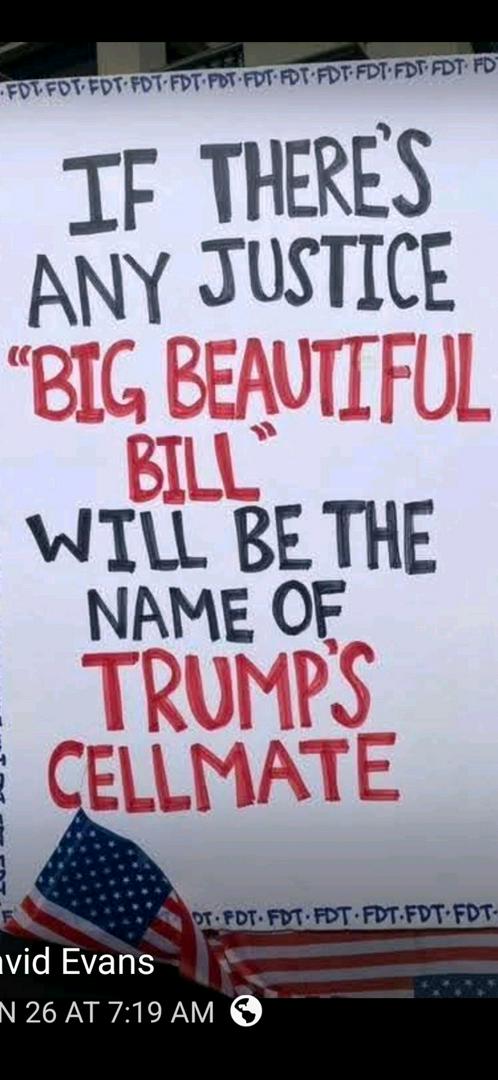 FDT·FDT·FDT·FDT·FDT·FDT·FDT·FDT·FDT·FDT·FDT·FDT FD
IF THERE'S
ANY JUSTICE
"BIG BEAUTIFUL
BILL"
WILL BE THE
NAME OF
TRUMP'S
CELLMATE
DT·FDT·FDT·FDT·FDT·FDT·FDT·
avid Evans
N 26 AT 7:19 AM